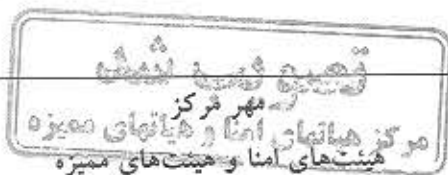 تصویر نسخه
مهر مرکز
مرکز هیاتهای امنا و هیاتهای ممیزه
هیئت‌های امنا و هیئت‌های ممیزه